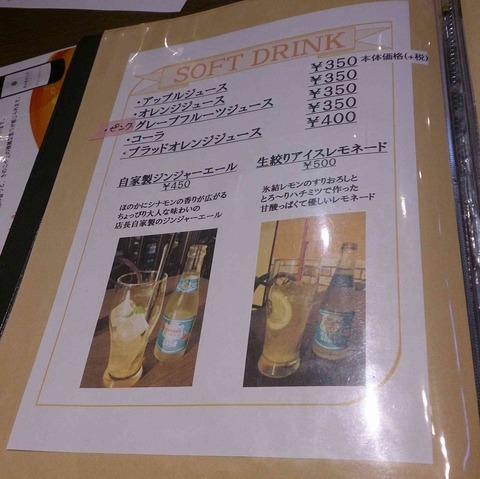 SOFT DRINK
本体価格(+税)
・アップルジュース ￥350
・オレンジジュース ￥350
・ピンクグレープフルーツジュース ￥350
・コーラ ￥350
・ブラッドオレンジジュース ￥400
自家製ジンジャーエール
￥450
ほのかにシナモンの香りが広がる
ちょっぴり大人な味わいの
店長自家製のジンジャーエール
生絞りアイスレモネード
￥500
氷結レモンのすりおろしと
とろ～りハチミツで作った
甘酸っぱくて優しいレモネード